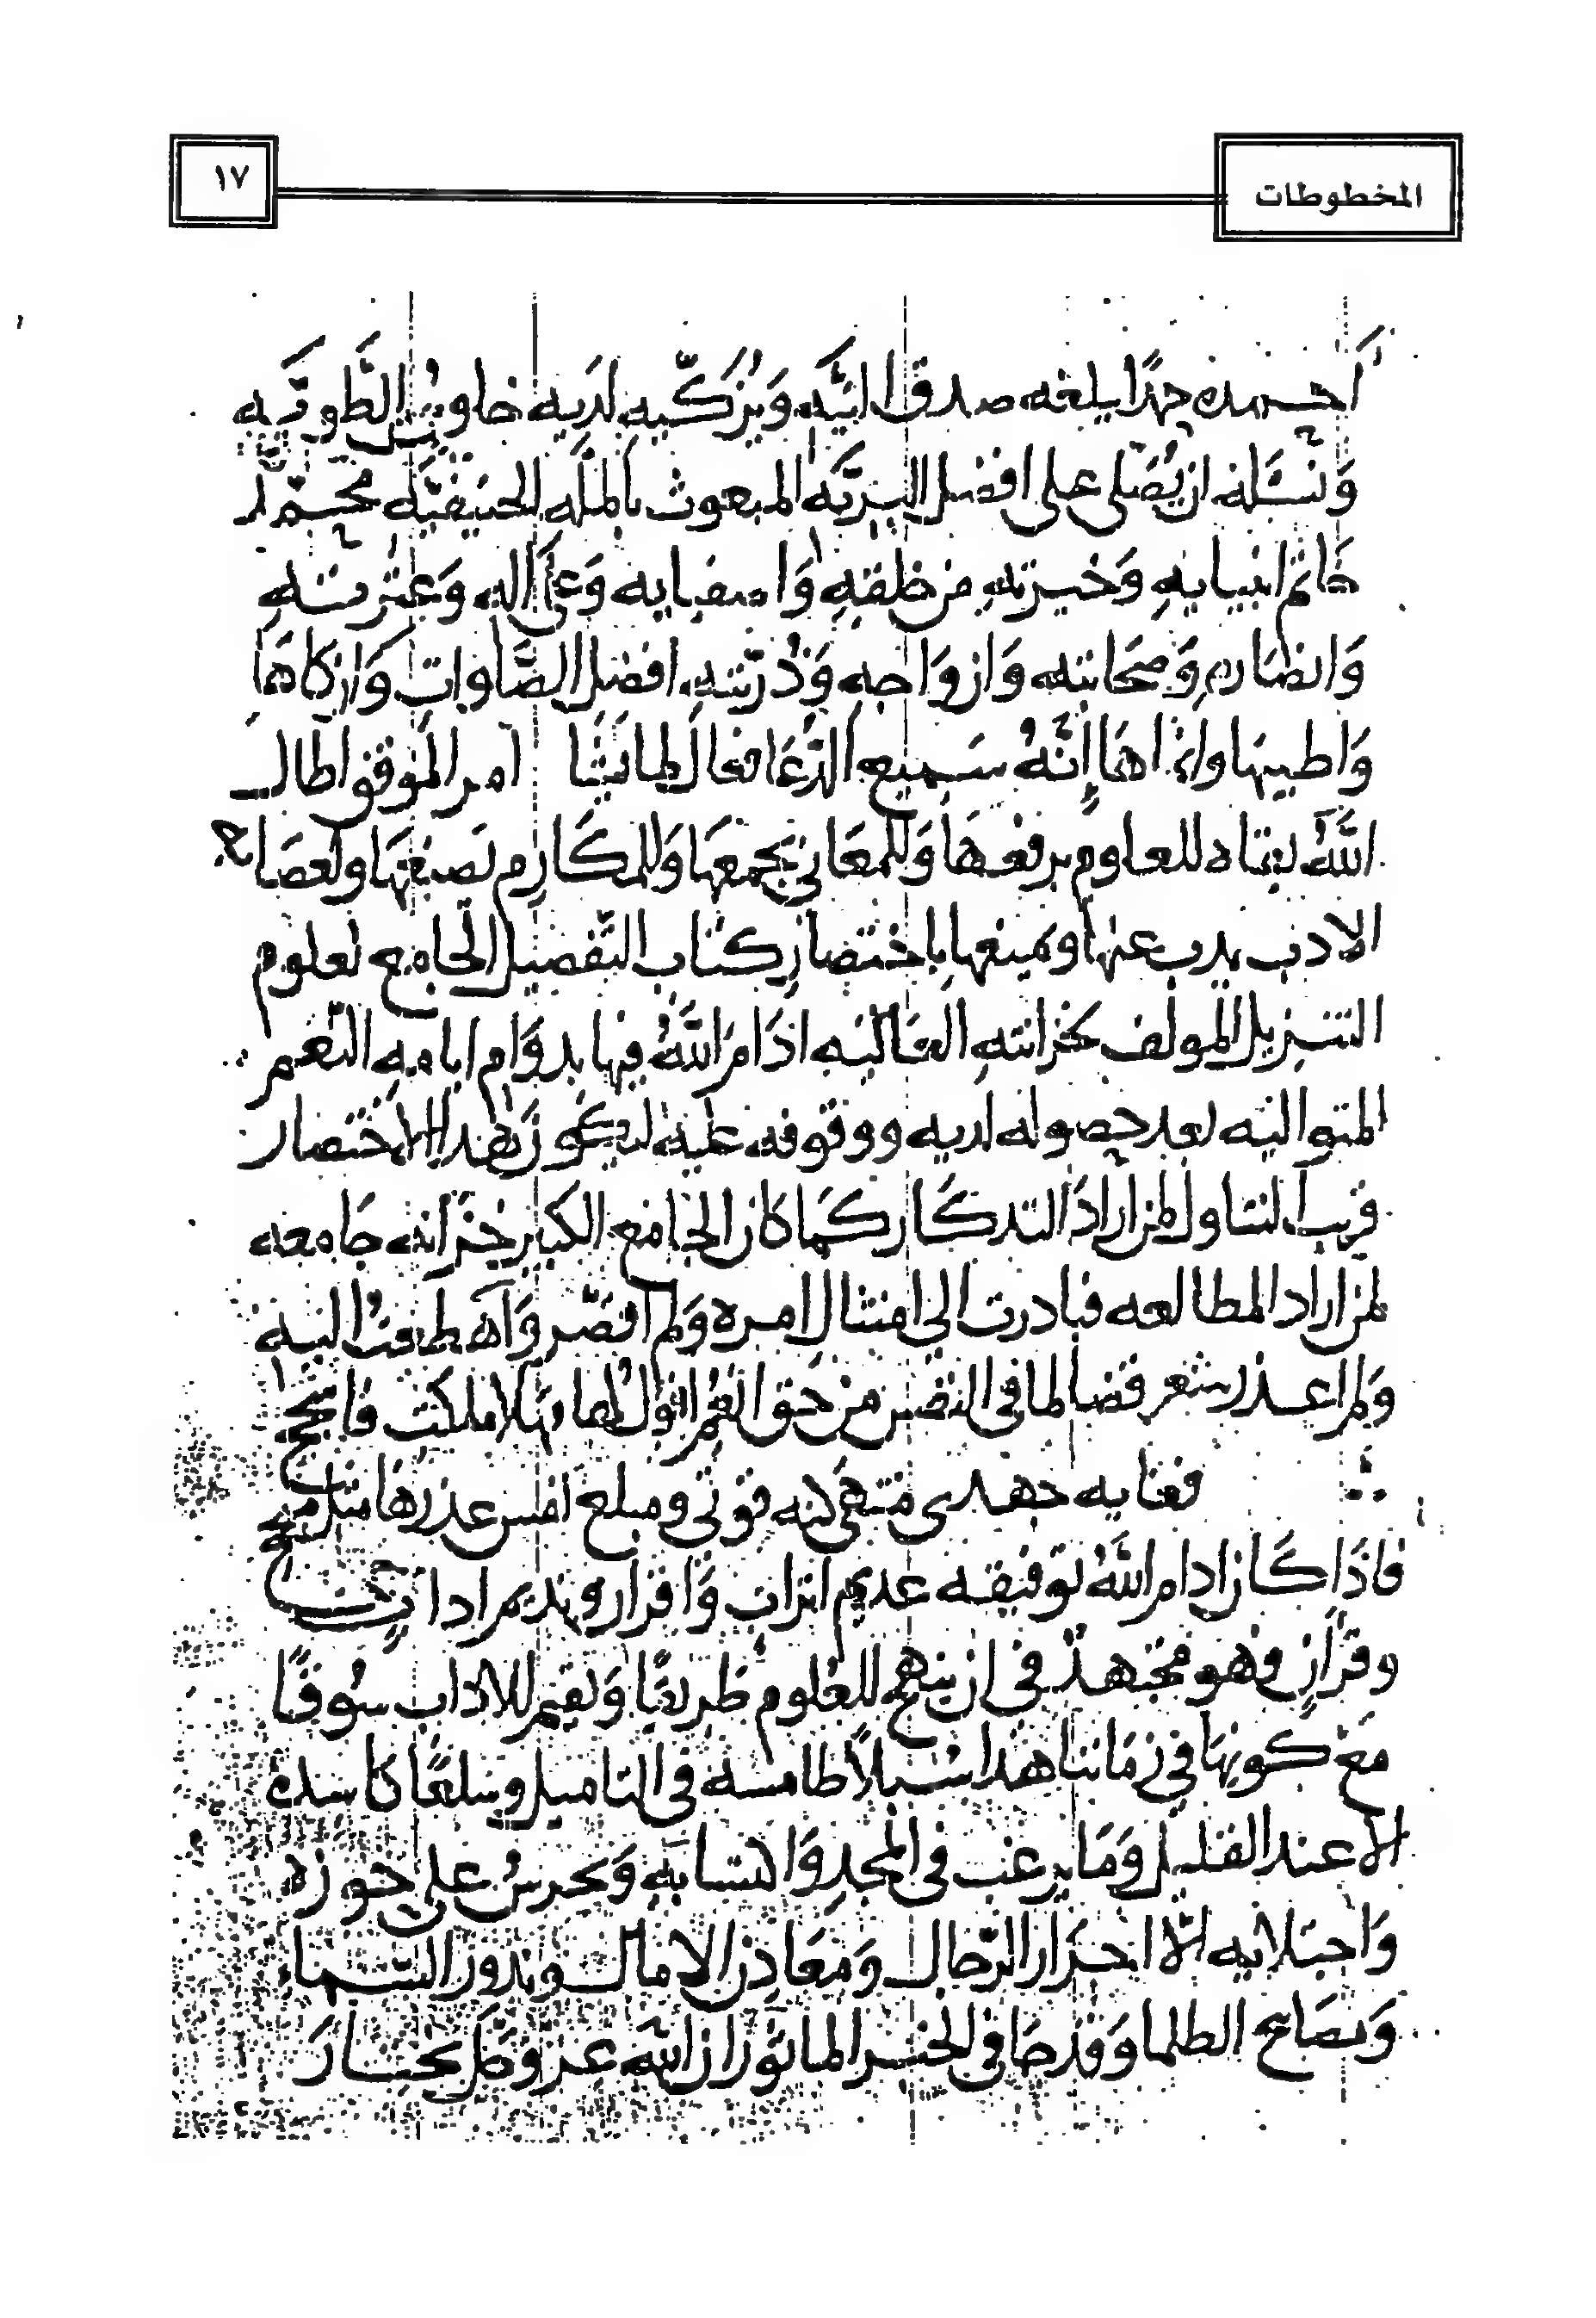 المخطوطات
١٧
أحمده حمدًا يبلغه صدق النيَّه وَيُزَكّيه لديه خلوص الطَّويَّه
وَنسَئله ان يُصَلى على افضل البريَّه المبعوث بالملَّه الحنيفيَّه محمّد
خَاتم انبيايهِ وَخيرتهِ من خلقهِ وَاصفيايه وَعَلَى الهِ وَعترتهِ
وَانصَارهِ وَصحَابته وَازوَاجهِ وَذُرّيتهِ افضل الصَّلوات وَازكاهَا
وَاطيبهَا وانماهَا إنَّهُ سَميع الدُّعَا فعال لما يشَا امر الموفق اطال
اللَّهُ بقاه للعلوم يرفعهَا وَللمعَاني يجمعهَا وَللمكَارم يصنعهَا ولعصَابه
الادب يدب عنها ويمنعها باختصَار كتَاب التَّفصيل الجامع لعلوم
التنزيل المولف لخزانتهِ العَاليه اذَامَ اللَّهُ فيها بدوَام ايامهِ النّعم
المتواليه بعد حصوله لديه ووقوفه عليه ليكون هذا الاختصار
قريب التناول لمن ارادَ التذكَار كمَا كان الجامع الكبير خزَانه جَامعه
لمن اراد المطالعه فبادرت الى امتثال امره وَلم اقصّر وَاهطعت اليه
وَلم اعذر شعر قضا لما في النفس من حَق انعُم اقولُ لها مهلا ملكت فاسجح
فغايه جهدى منتهَى كنه قوتى ومبلغ نفس عذرهَا مثل منجح
فاذَا كَان ادام اللَّهُ توفيقه عديم اتراب وَاقران ونديم اداب
وقرَان فهو مجتهدٌ في ان ينهج للعُلوم طريقًا وَيقيم للاداب سُوقًا
معَ كونهَا في زمَاننا هذا سُبلاً طامسه في التاميل وسلعًا كاسده
الا عند القليل وَمَا يرغب في المجدِ وَاكتسابهِ وَيحرصُ على حوزه
وَاجتلابه الَّا احرَار الرّجال وَمعَادن الامال وبدور السّماء
وَمصَابيح الظلما وَقد جَا في الخبر الماثور ان اللَّه عز وجَل يختَارَ